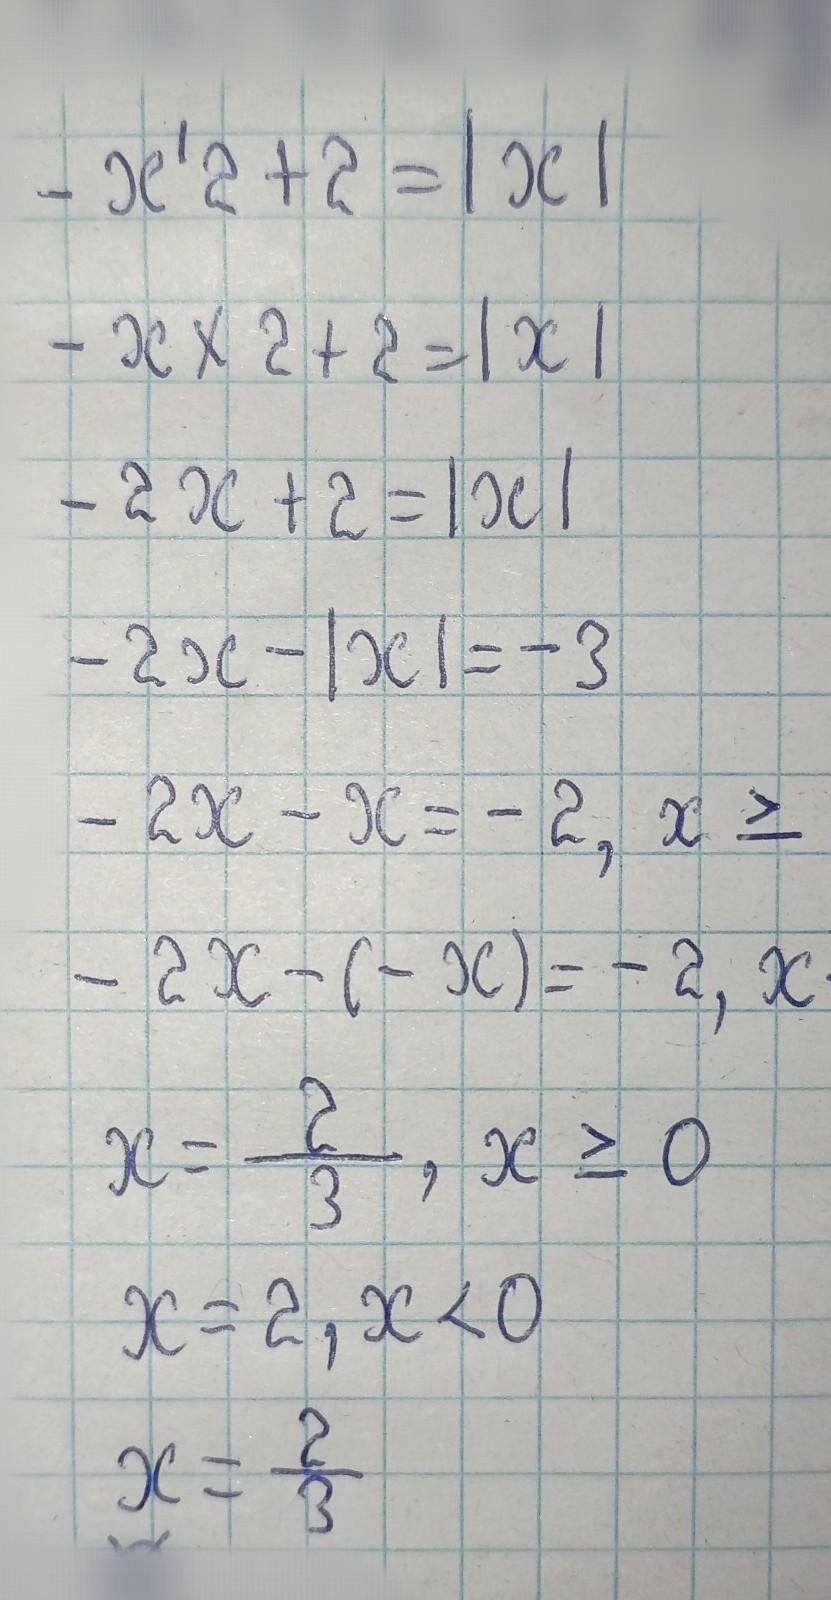 - x'2 + 2 = |x|
- x × 2 + 2 = |x|
- 2x + 2 = |x|
- 2x - |x| = - 3
- 2x - x = - 2, x ≥
- 2x - (- x) = - 2, x
x = 2/3, x ≥ 0
x = 2, x < 0
x = 2/3